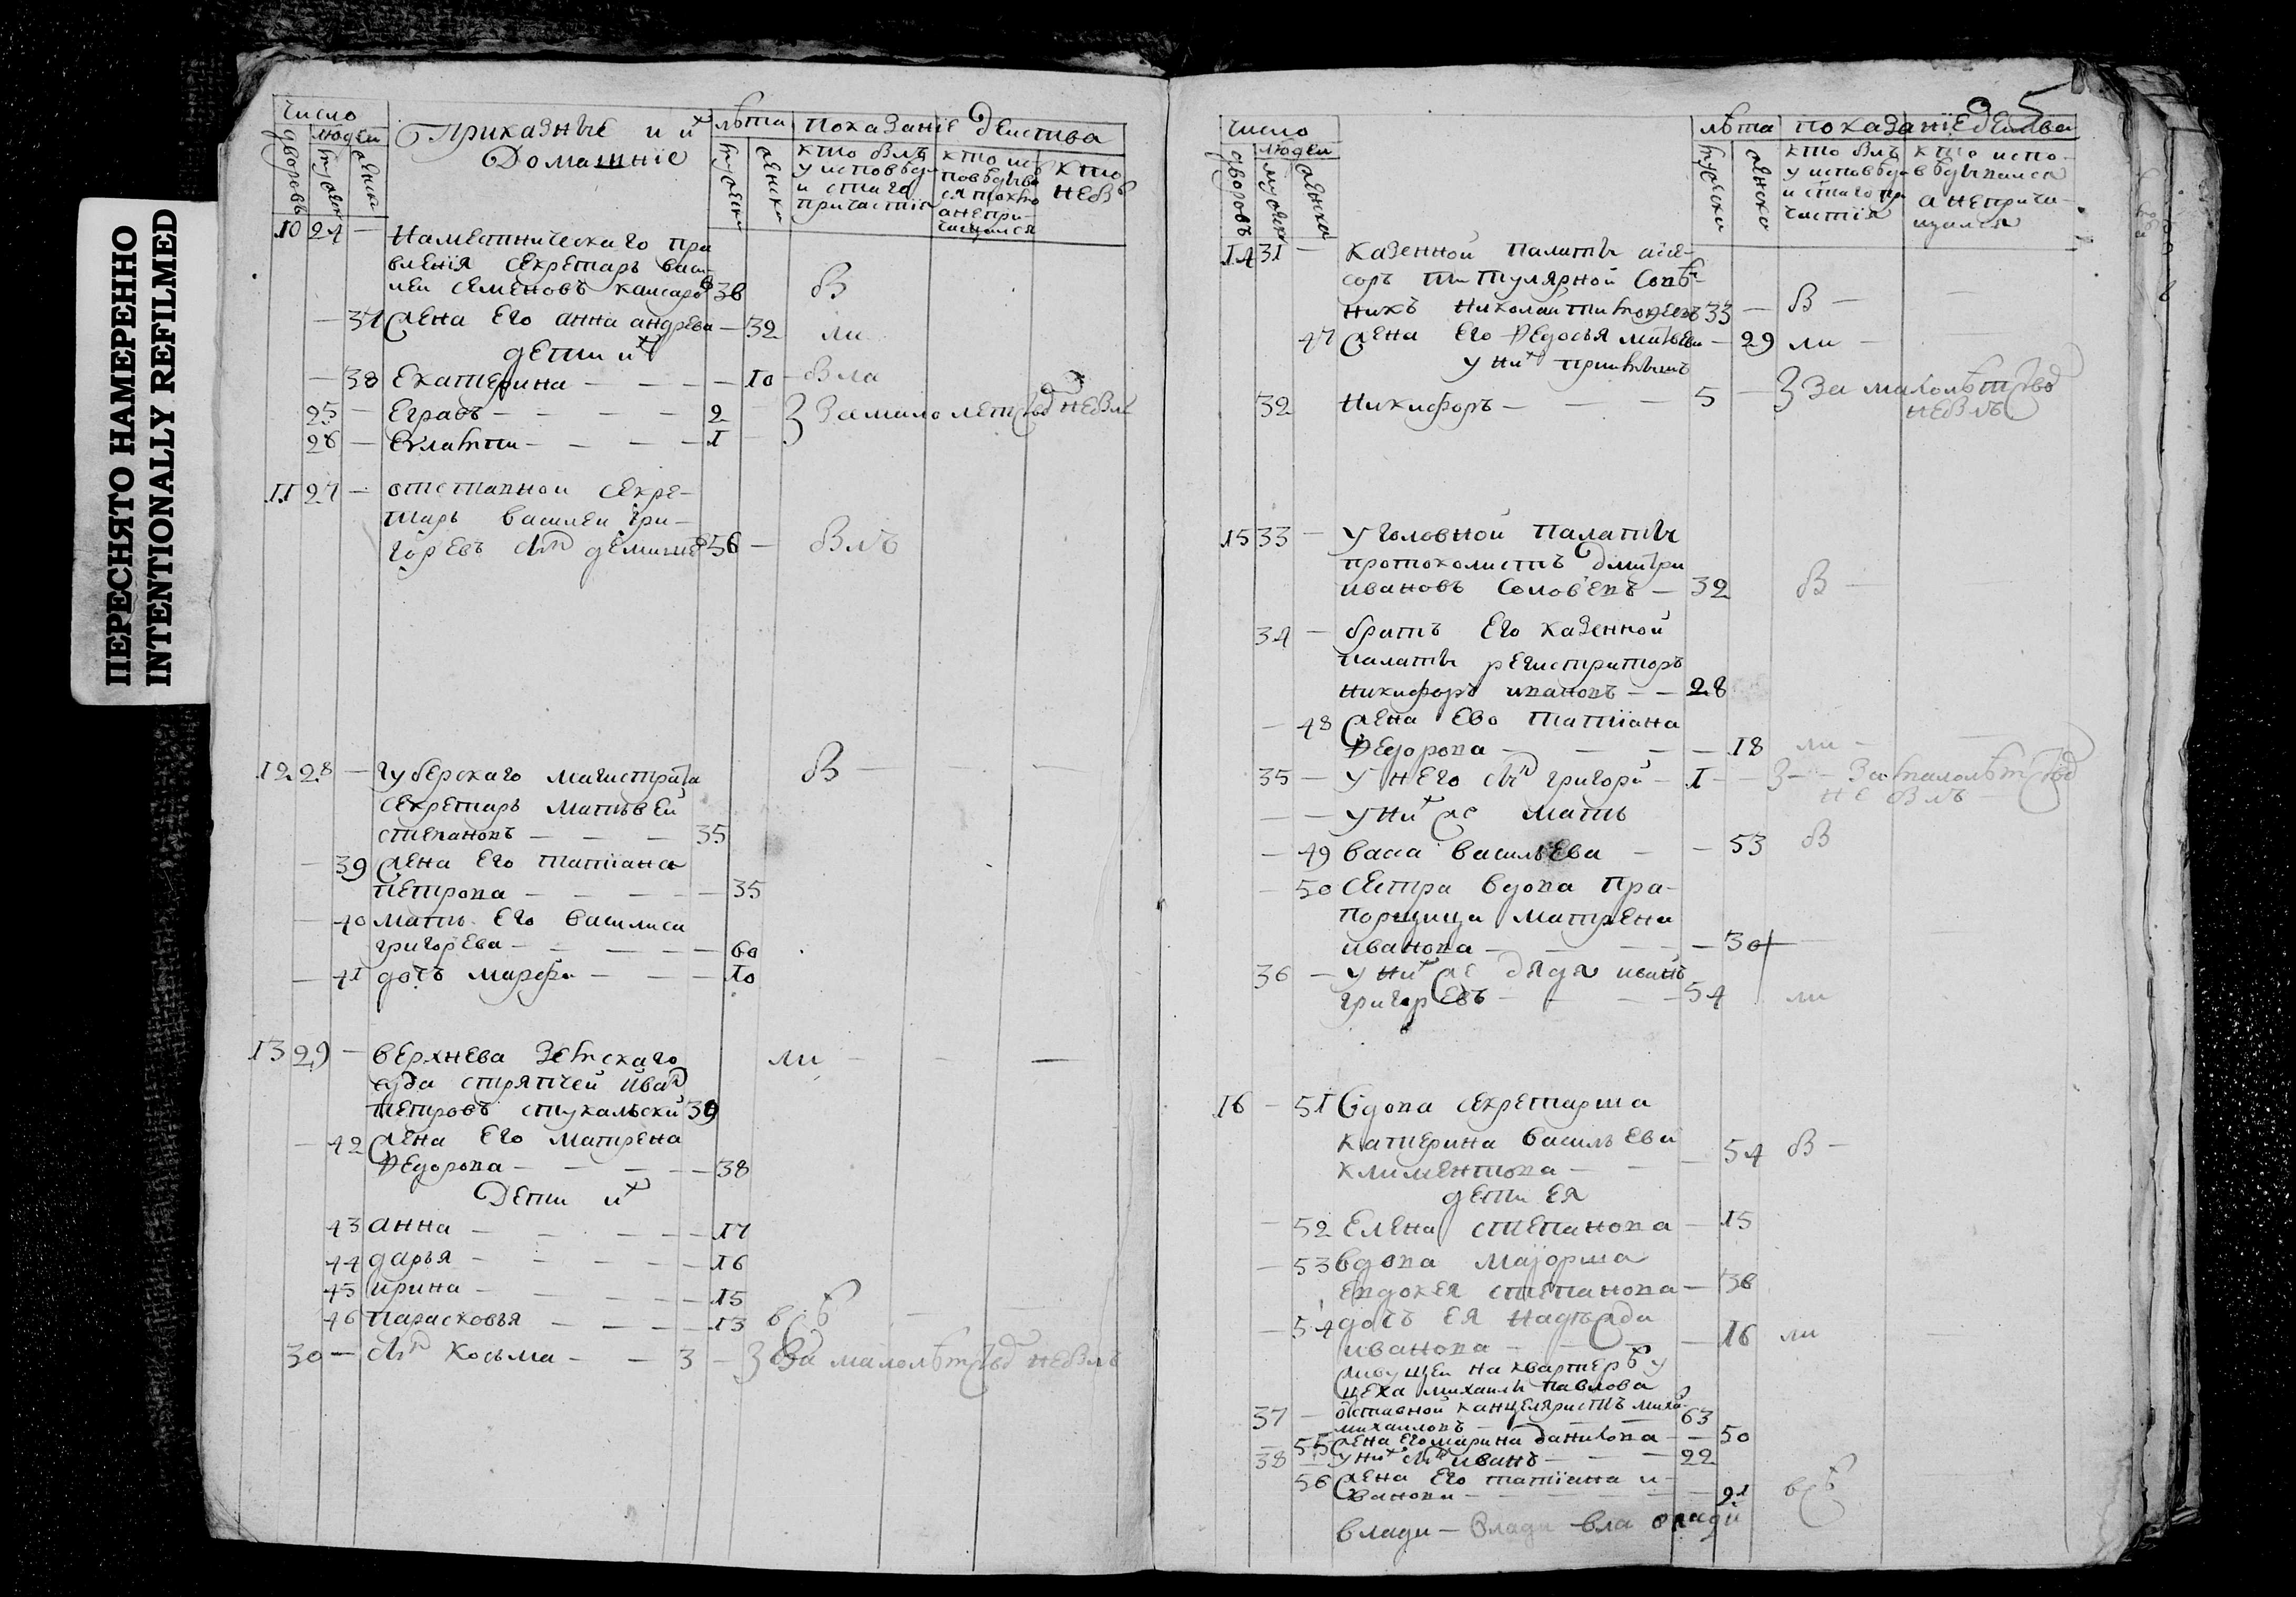 ПЕРЕСНЯТО НАМЕРЕННО
INTENTIONALLY REFILMED
число
людей
дворовъ
мужеск
женска
Приказные и их
Домашнїе
лѣта
мужеска
женска
показанїе действа
кто былъ
у исповеди
и стаго
причастїя
кто ис-
поведыва
ся токмо
а непри-
чащался
кто
не бы
10 24 — Наместническаго пра
вленїя секретарь васи-
леи семеновъ 36 В
— 37 жена Его анна андрева — 32 ли
дети их
— 38 Екатерина — — — — 10 — была
25 — Еграѳъ — — — — 2 } За мало летствод не был
26 — Евлампи — — — — 1
11 27 — отставной секре-
тарь василеи гри-
горевъ снъ 56 — былъ
12 28 — губерскаго магистрата В — — —
секретарь матьвей
степановъ — — — 35
— 39 жена Его татїана
петрова — — — — — 35
— 40 мать Его василиса
григорева — — — — 60
— 41 дочь марѳа — — — 10
13 29 — верхнева Земскаго ли — — —
суда стряпчей Иван
петровъ стукальски 39
— 42 жена Его матрена
Ѳедорова — — — — — 38
Дети их
43 анна — — — — — 17
44 дарья — — — — — 16
45 ирина — — — — — 15
46 парасковья — — — — 13 все — —
30 — снъ косьма — — 3 — } За малолѣтствод не былъ
5
число
людей
дворовъ
мужеск
женска
лѣта
мужеска
женска
показанїе действа
кто былъ
у исповеди
и стаго при
частїя
кто испо-
ведывался
а неприча-
щался
14 31 — казенной палаты асе-
соръ титулярной Совѣ-
никъ Николай 33 — В — —
47 жена Его Ѳедосья матвѣва — 29 ли —
у них приемышъ
32 Никифоръ — — — 5 — } За малолѣтствод
не былъ
15 33 — уголовной палаты
протоколистъ дмитри
ивановъ Соловьевъ — 32 В —
34 — братъ Его казенной
палаты регистраторъ
никифоръ ивановъ — — 28
— 48 жена Ево татїана
Ѳедорова — — — — 18 ли — —
35 — у него снъ григорй — 1 — } — За малолѣтствод
не былъ
— — у них же мать
— 49 васа васильева — — 53 В
— 50 сестра вдова пра-
порщица матрена
иванова — — — — 30 —
36 — у них же дядя иванъ
григоревъ — — — 54 ли
16 — 51 вдова секретарша
катерина васильева
климентова — — — 54 В —
дети Ея
— 52 Елена степанова — 15
— 53 вдова маїорша
Евдокея степанова — 36
— 54 дочь Ея надежда
иванова — — — — 16 ли —
живущеи на квартерѣ у
цеха михаилы павлова
37 — отставной канцеляристъ миха
михаиловъ — — — 63
— 55 жена его марина данилова — — 50
38 — у них снъ иванъ — — — 22
56 жена Его татїана и-
ванова — — — — — 21 все
влади — влади вла влади